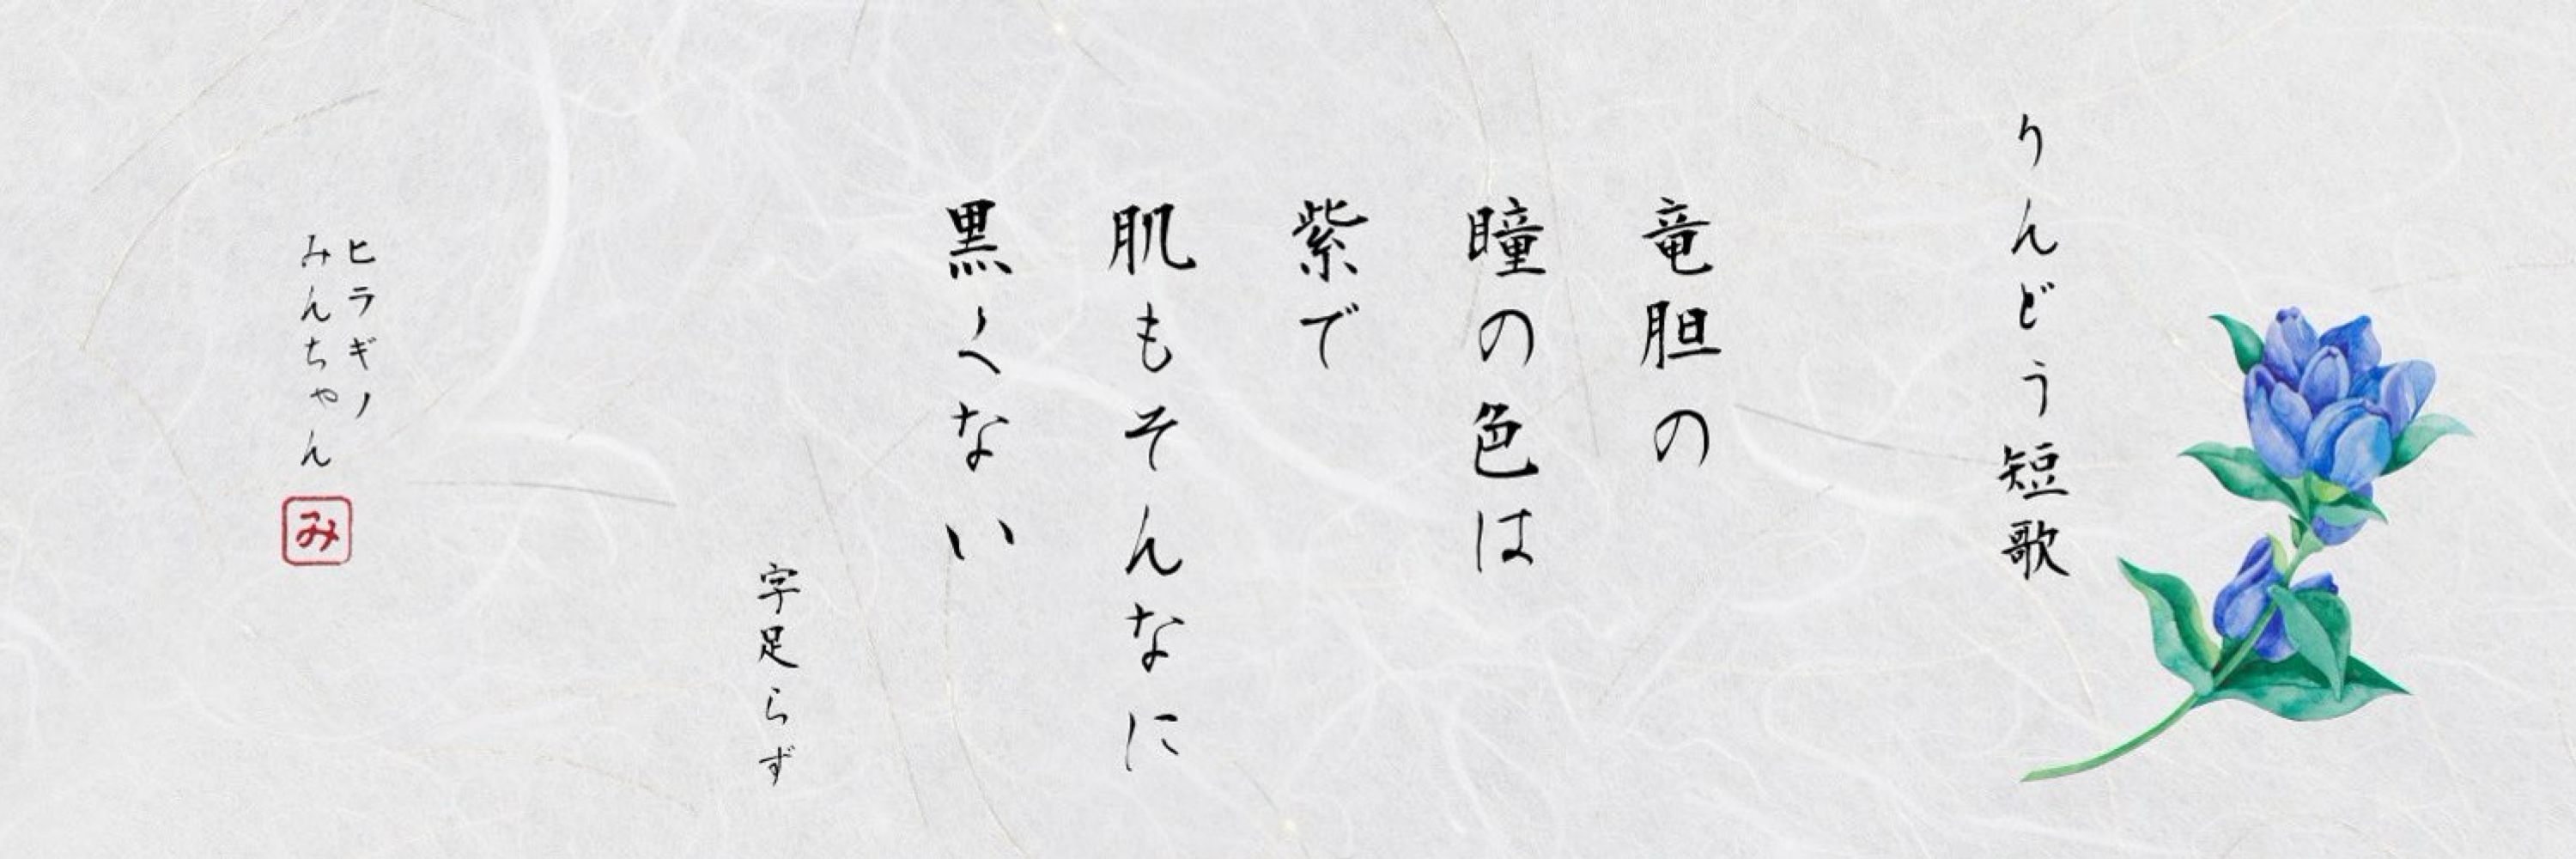 りんどう短歌
竜胆の
瞳の色は
紫で
肌もそんなに
黒くない
字足らず
ヒラギノ
みんちゃん
み